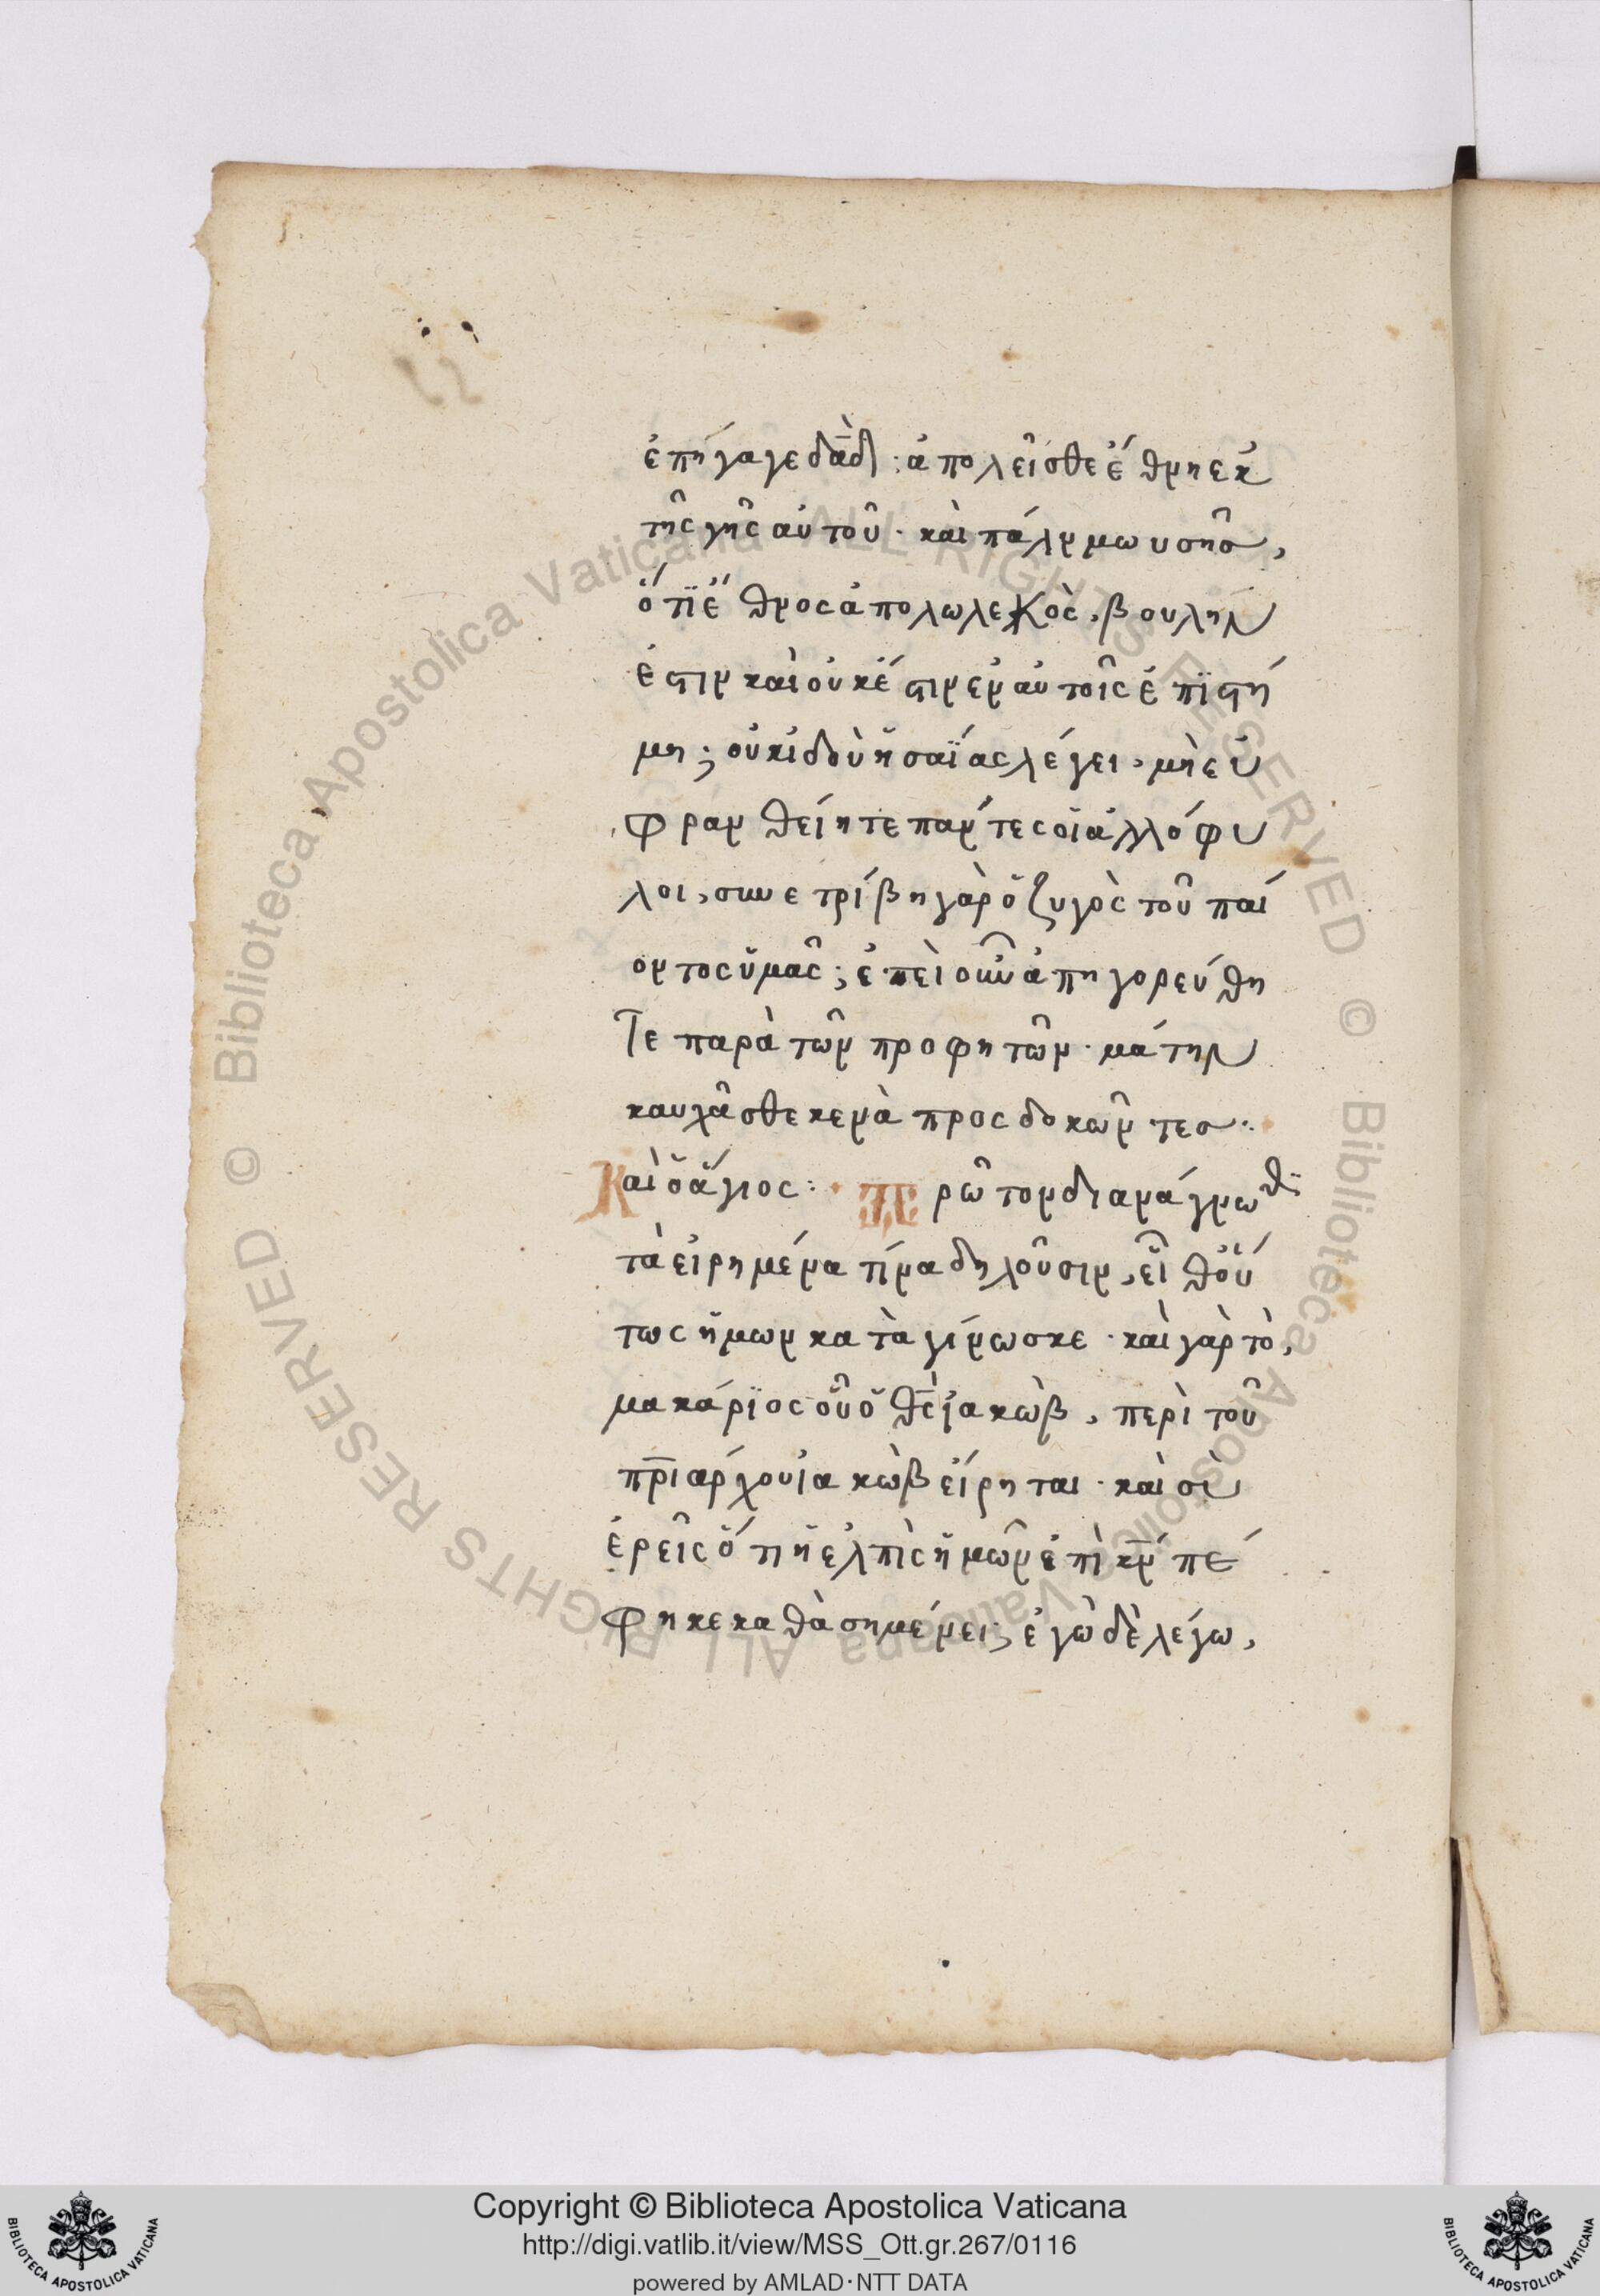 ἐπήγαγε δᾱδ· ἀπολεῖσθε ἔθνη ἐκ
τῆς γῆς αὐτοῦ· καὶ πάλιν μωυσης,
ὅτι ἔθνος ἀπολωλεκὸς, βουλὴν
ἐστιν καὶ οὐκ ἔστιν ἐν αὐτοῖς ἐπιστή
μη; οὐκ ἰδοὺ ἡσαΐας λέγει, μὴ εὐ
φρανθείητε πάντες οἱ ἀλλόφυ
λοι, συνετρίβη γὰρ ὁ ζυγὸς τοῦ παί
οντος ὑμᾶς; ἐπεὶ οὖν ἀπηγορεύθη
τε παρὰ τῶν προφητῶν· μάτην
καυχᾶσθε κενὰ προσδοκῶντες.
Καὶ ὁ ἅγιος: Πρῶτον διανάγνωθι
τὰ εἰρημένα τίνα δηλοῦσιν, εἶθ οὕ
τως ἡμων καταγίνωσκε· καὶ γὰρ τὸ,
μακάριος οὗ ὁ θ̅ς̅ ἰακὼβ, περὶ τοῦ
πρ̅ιάρχου ἰακὼβ εἴρηται· καὶ σὺ
ἐρεῖς ὅτι ἡ ἐλπὶς ἡμῶν ἐπὶ κ̅ν̅ πέ
φηκε καθὰ σημένει; ἐγὼ δὲ λέγω,
Copyright © Biblioteca Apostolica Vaticana
http://digi.vatlib.it/view/MSS_Ott.gr.267/0116
powered by AMLAD·NTT DATA